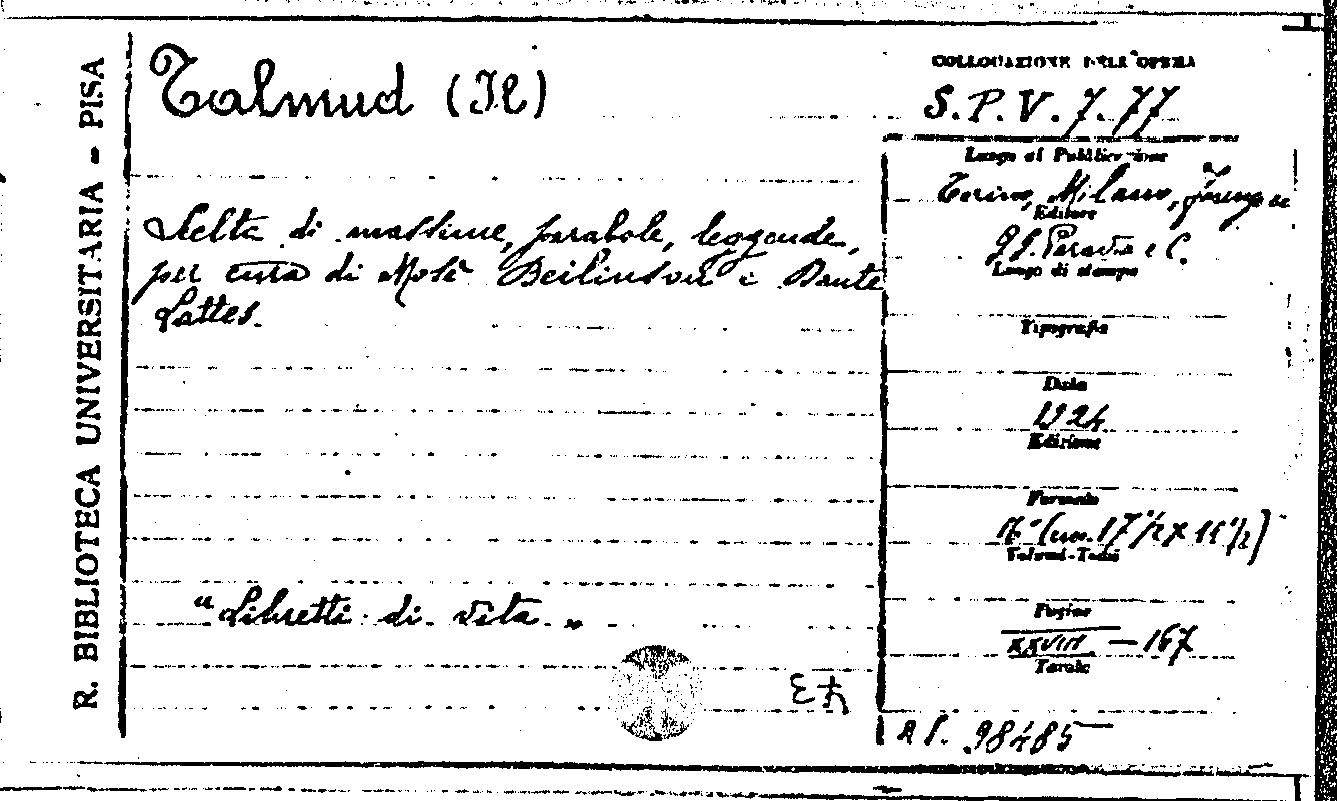 R. BIBLIOTECA UNIVERSITARIA - PISA
Talmud (Il)
Scelta di massime, parabole, leggende,
per cura di Mosè Beilinson e Dante
Lattes.
"Libretti di vita"
COLLOCAZIONE DELL'OPERA
S.P.V. 7.77
Luogo di Pubblicazione
Torino, Milano, Firenze ec
Editore
G. B. Paravia e C.
Luogo di stampa
Tipografia
Data
1924
Edizione
Formato
16° (cm. 17 1/2 x 11 1/2)
Volumi-Tomi
Pagine
XXVIII - 167
Tavole
98485